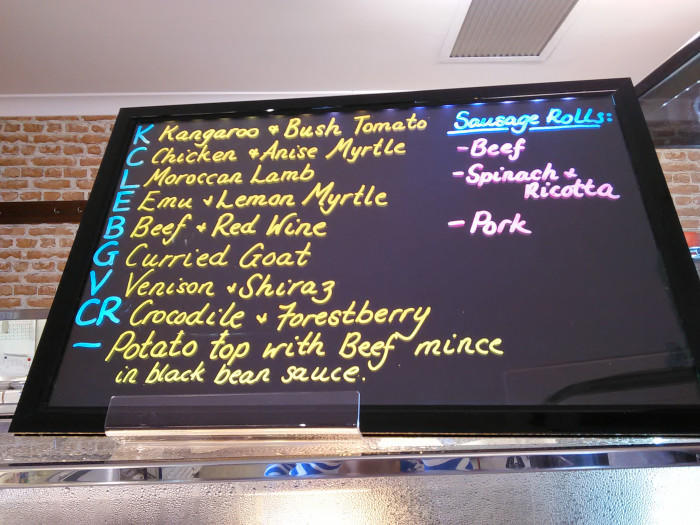 K Kangaroo & Bush Tomato
C Chicken & Anise Myrtle
L Moroccan Lamb
E Emu & Lemon Myrtle
B Beef & Red Wine
G Curried Goat
V Venison & Shiraz
CR Crocodile & Forestberry
- Potato top with Beef mince
in black bean sauce.
Sausage Rolls:
- Beef
- Spinach &
Ricotta
- Pork